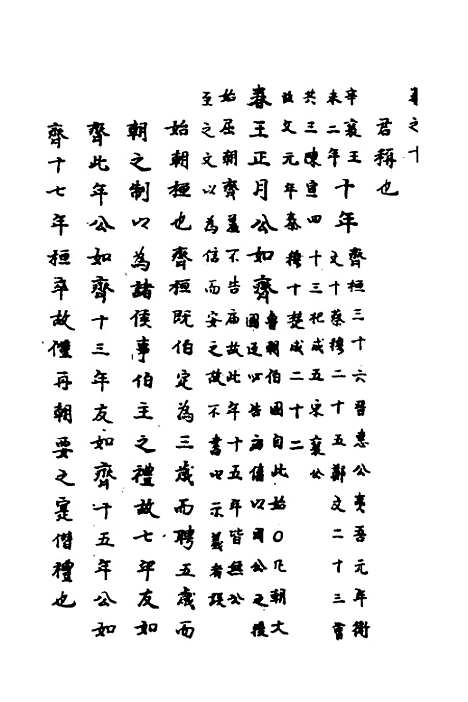 卷之十
君稱也
辛襄王
未二年
十年
齊桓三十六晉惠公夷吾元年衛
文十蔡穆二十五鄭文二十三曹
共三陳宣四十三杞成五宋襄公
茲父元年秦穆十楚成二十二
春王正月公如齊
魯朝伯國自此始○凡朝大
國還以告廟僖以周公之後
始屈朝齊羞不告廟故此年十五年皆無公
至之文以為信而安之故不書以示義者誤
始朝桓也齊桓既伯定為三歲而聘五歲而
朝之制以為諸侯事伯主之禮故七年友如
齊此年公如齊十三年友如齊十五年公如
齊十七年桓卒故僖再朝要之寔僭禮也